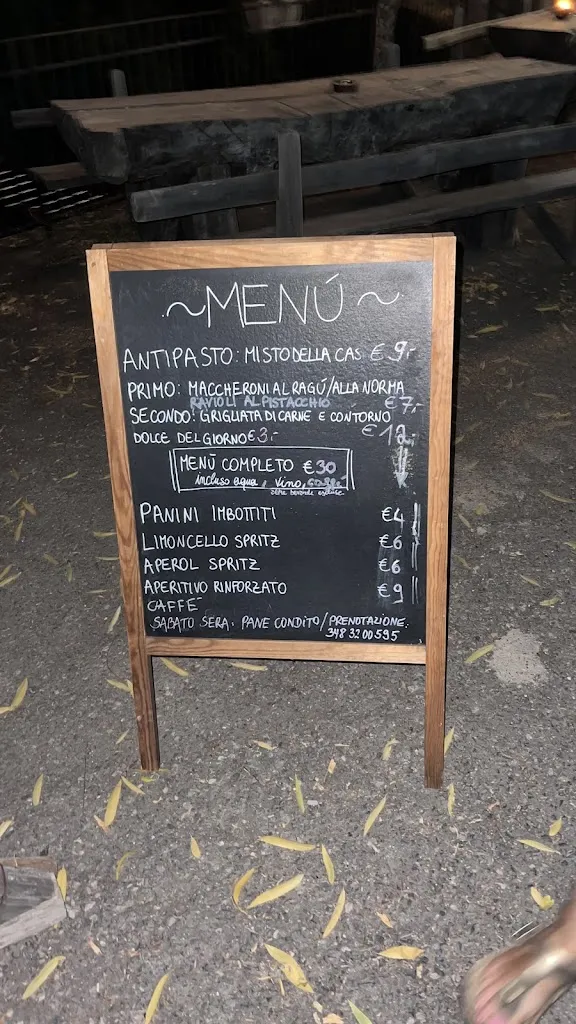 ~MENÚ~
ANTIPASTO: MISTO DELLA CAS €9,-
PRIMO: MACCHERONI AL RAGÚ/ALLA NORMA
RAVIOLI AL PISTACCHIO €7,-
SECONDO: GRIGLIATA DI CARNE E CONTORNO
€12,-
DOLCE DEL GIORNO €3,-
MENÙ COMPLETO €30
incluso aqua, vino,
altre bevande escluse
PANINI IMBOTTITI €4
LIMONCELLO SPRITZ €6
APEROL SPRITZ €6
APERITIVO RINFORZATO €9
CAFFE'
SABATO SERA: PANE CONDITO/PRENOTAZIONE:
348 3200595